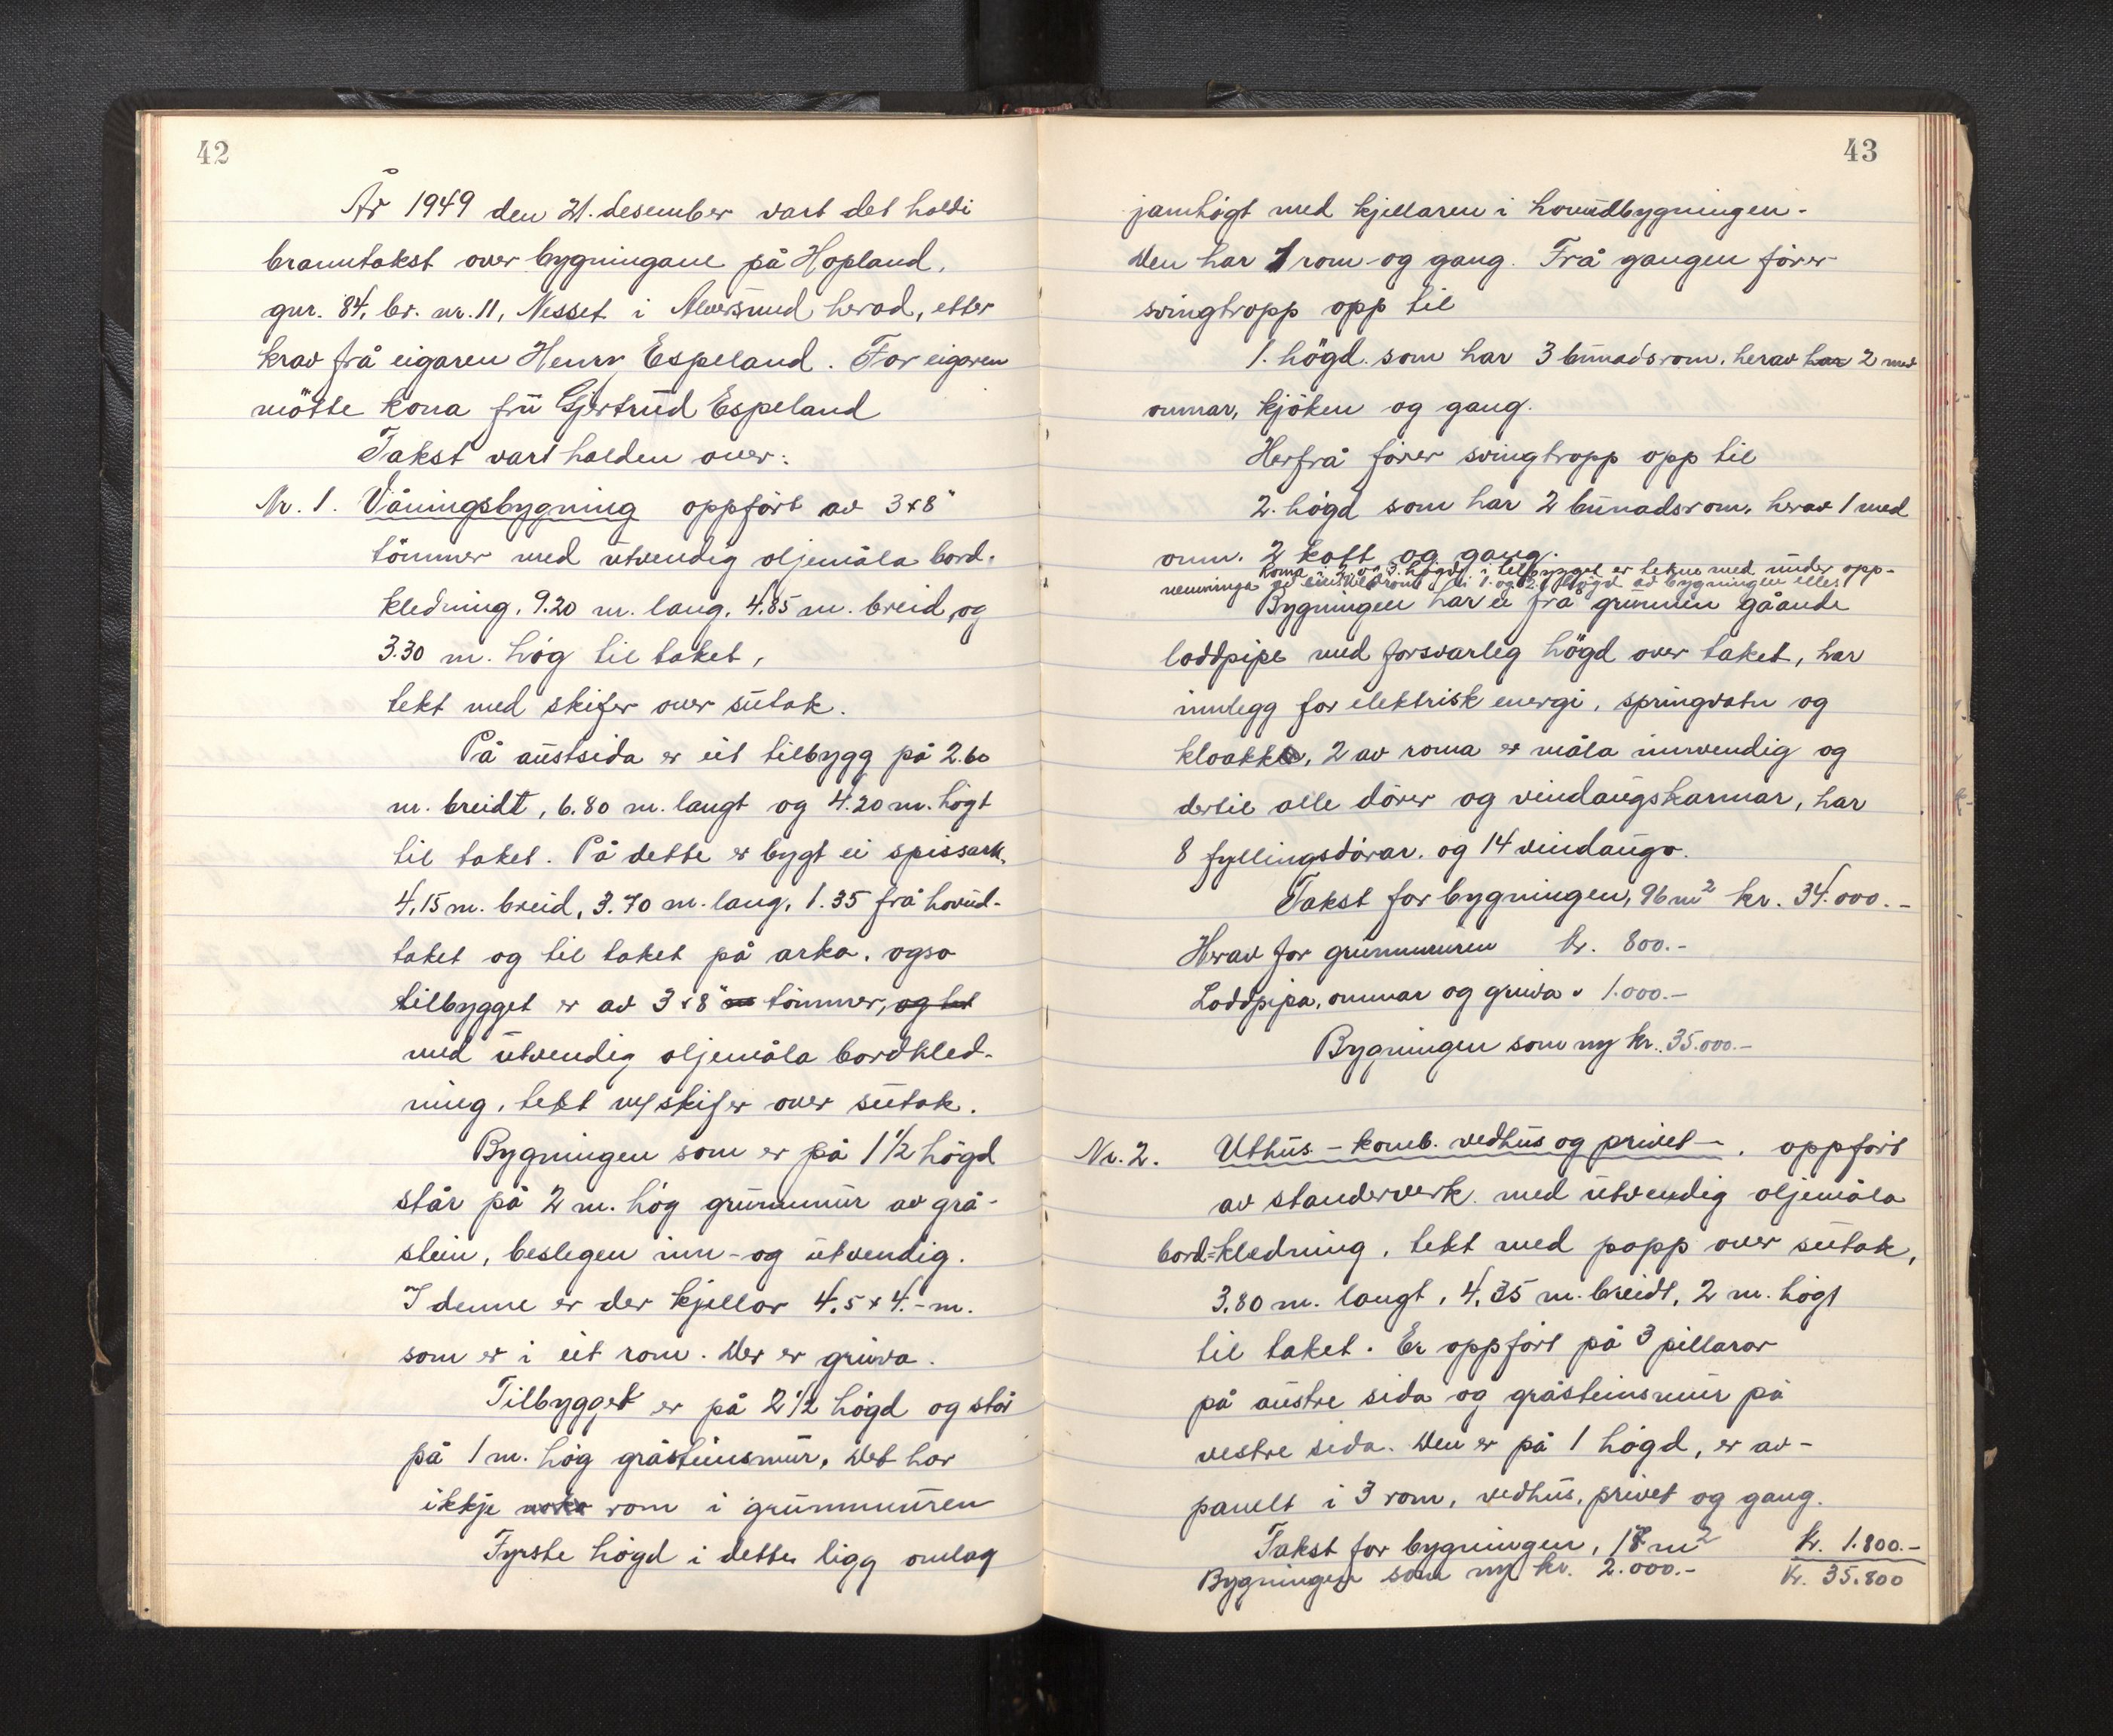 42
År 1949 den 21. desember vart det haldi
branntakst over bygningane på Hopland,
gnr. 84, br. nr. 11, Nesset i Alversund herad, etter
krav frå eigaren Henry Espeland. For eigaren
møtte kona frú Gjertrud Espeland
Takst vart halden over:
Nr. 1. Våningsbygning oppført av 3x8"
tömmer med utvendig oljemåla bord-
kledning, 9.20 m. lang, 4.85 m. breid, og
3.30 m. høg til taket,
tekt med skifer over sutak.
På austsida er eit tilbygg på 2.60
m. breidt, 6.80 m. langt og 4.20 m. högt
til taket. På dette er bygt ei spissark,
4,15 m. breid, 3.70 m. lang, 1.35 frå hovud-
taket og til taket på arka, ogso
tilbygget er av 3x8" tömmer, og tet
med utvendig oljemåla bordkled-
ning, tekt m/skifer over sutak.
Bygningen som er på 1 1/2 högd
står på 2 m. høg grunnmur av grå-
stein, beslegen inn- og utvendig.
I denne er der kjellar 4,5 x 4.- m.
som er i eit rom. Der er gruva.
Tilbygget er på 2 1/2 högd og står
på 1 m. høg gråsteinsmur. Det har
ikkje noko rom i grunnmuren
Fyrste högd i dette ligg omlag
43
jamhögt med kjellaren i hovudbygningen.
Den har 1 rom og gang. Frå gangen fører
svingtropp opp til
1. högd. som har 3 bunadsrom, herav har 2 med
omnar, kjöken og gang.
Herfrå fører svingtropp opp til
2. högd som har 2 bunadsrom, herav 1 med
omn. 2 kott og gang.
Roma i 2 og 3. högd i tilbygget er tekne med under opp-
av i 1. og 2. högd av bygningen elles.
Bygningen har ei frå grunnen gåande
loddpipe med forsvarleg högd over taket, har
innlegg for elektrisk energi, springvatn og
kloakk, 2 av roma er måla innvendig og
dertil alle dörer og vindaugskarmar, har
8 fyllingsdörar. og 14 vindaugo.
Takst for bygningen, 96 m² kr. 34.000.-
Herav for grunnmuren kr. 800.-
Loddpipa, omnar og gruva " 1.000.-
Bygningen som ny kr. 35.000.-
Nr. 2. Uthus - komb. vedhus og privet -, oppfört
av standerverk med utvendig oljemåla
bord=kledning, tekt med papp over sutak,
3,80 m. langt, 4,35 m. breidt, 2 m. högt
til taket. Er oppfört på 3 pillarar
på austre sida og gråsteinsmur på
vestre sida. Den er på 1 högd, er av-
panelt i 3 rom, vedhus, privet og gang.
Takst for bygningen, 17 m² kr. 1.800.-
Bygningen som ny kr. 2.000.- kr. 35.800